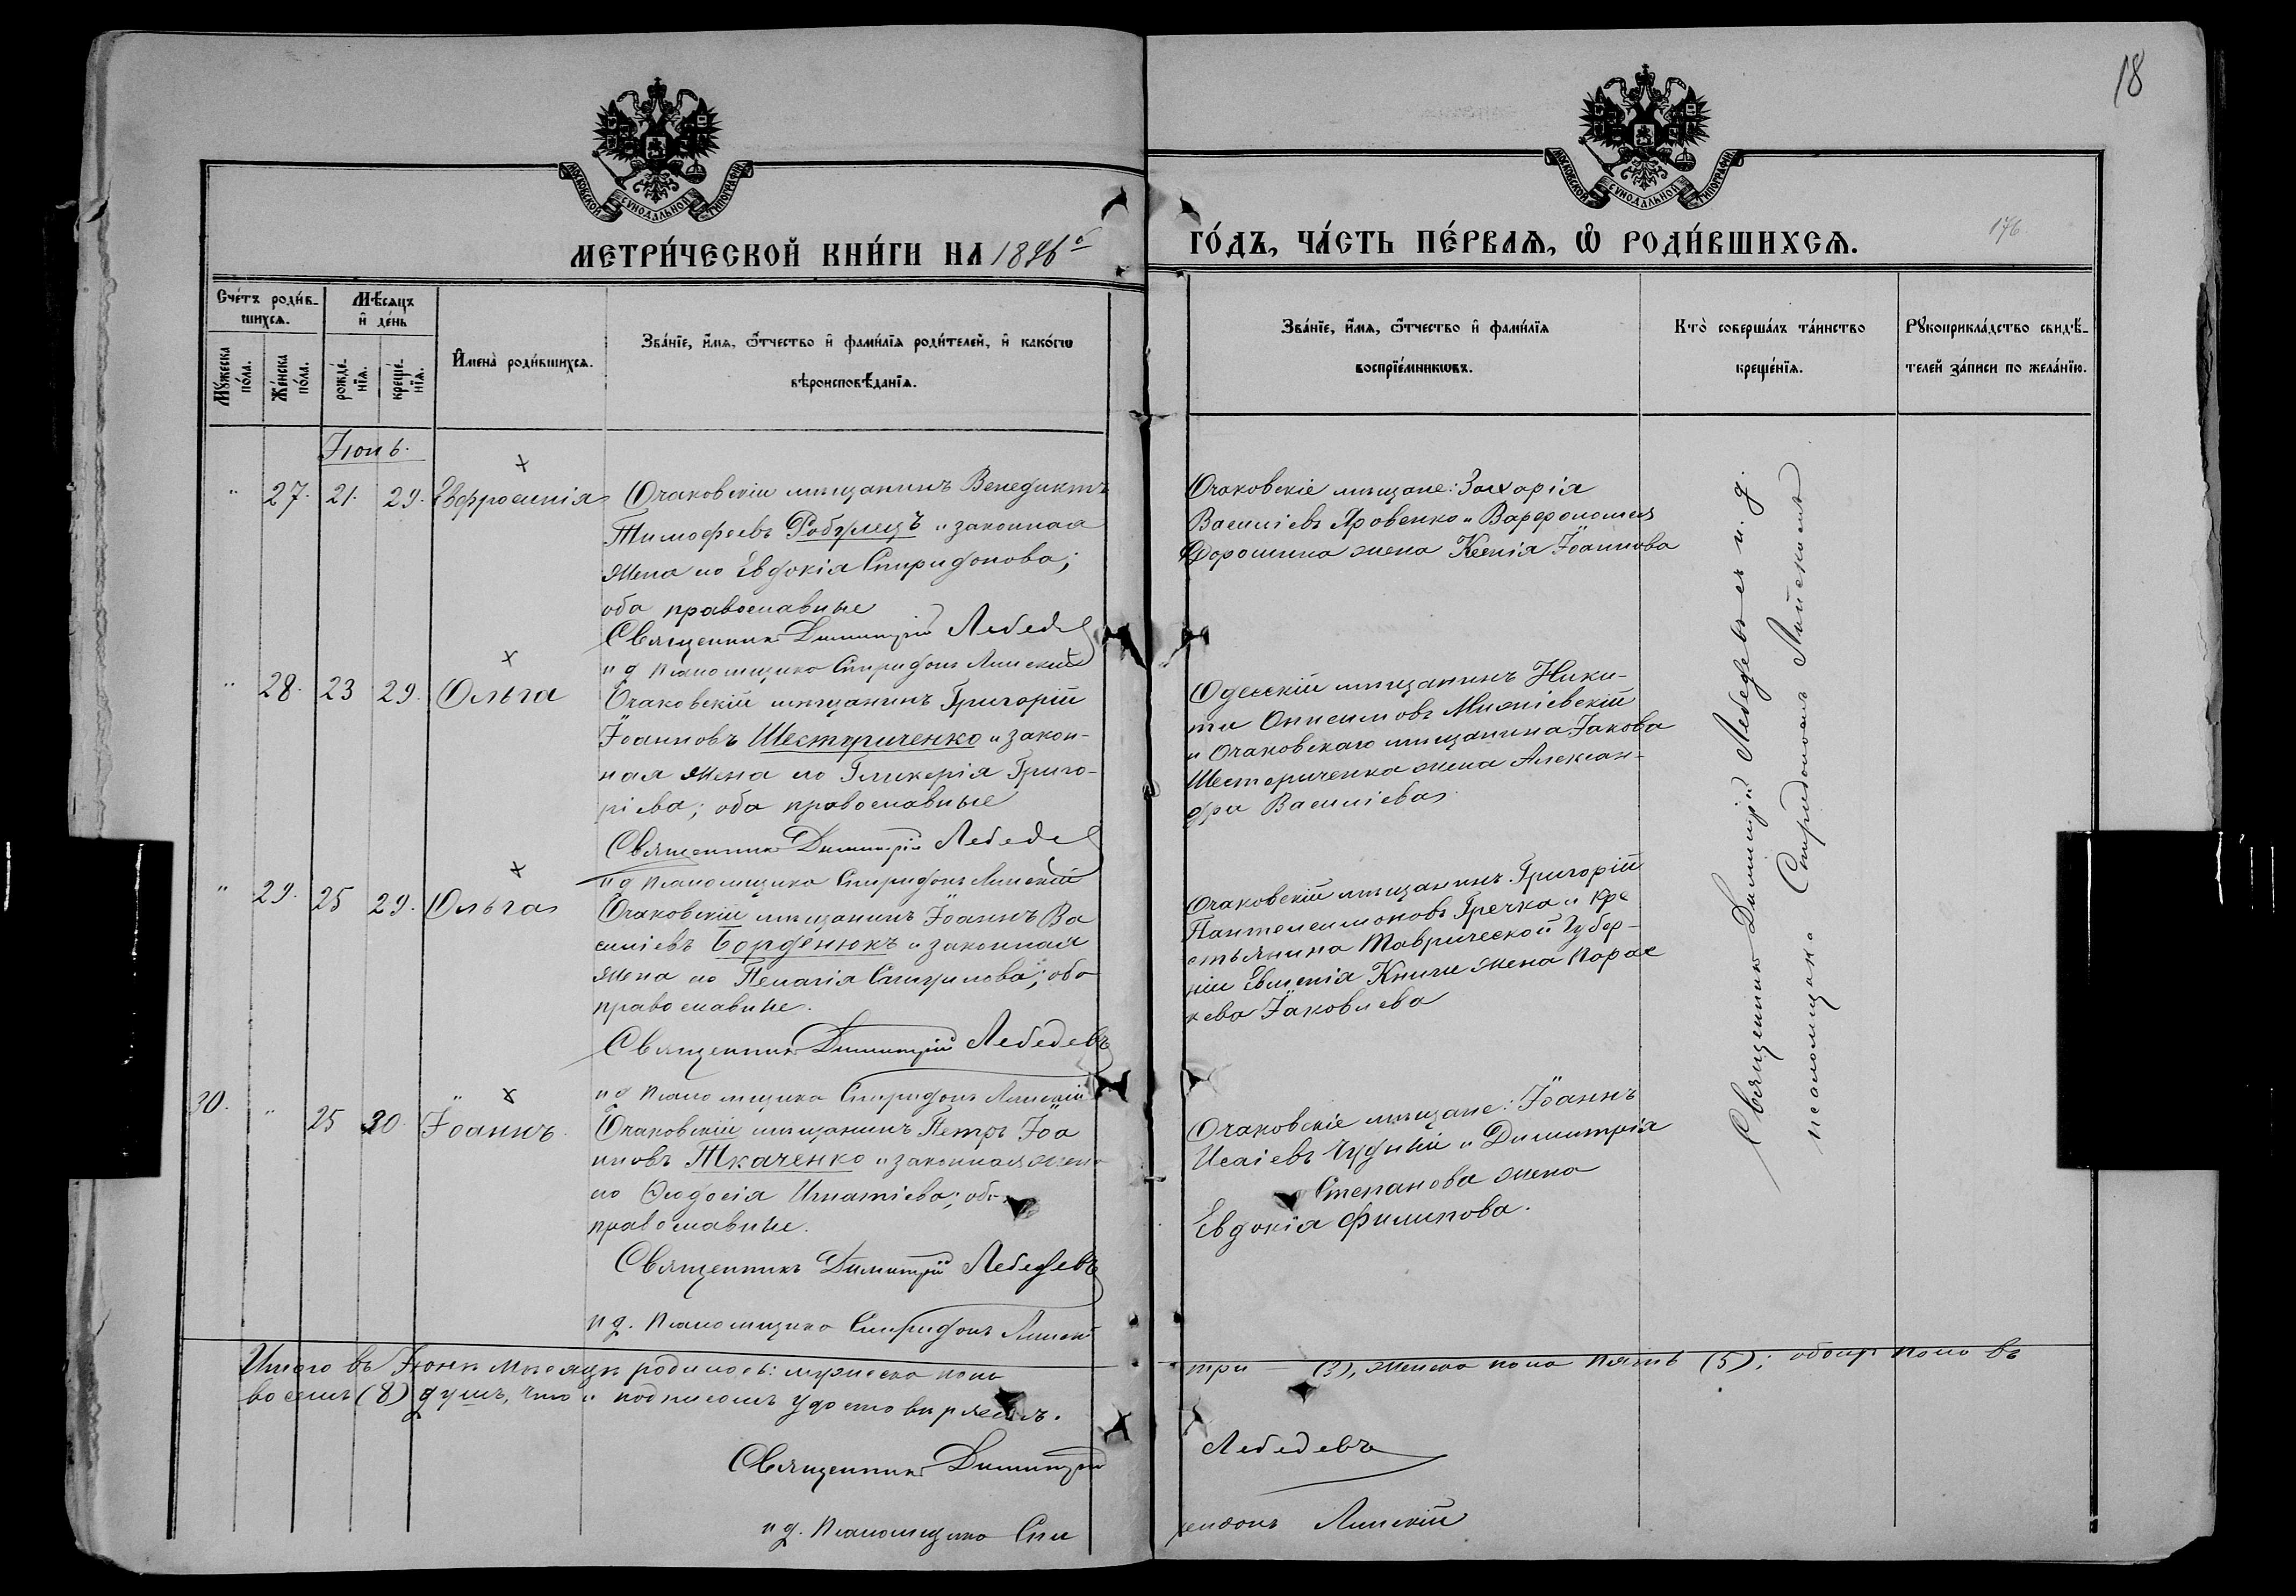 18
МОСКОВСКОЙ СУНОДАЛЬНОЙ ТИПОГРАФІИ
МОСКОВСКОЙ СУНОДАЛЬНОЙ ТИПОГРАФІИ
МЕТРИ́ЧЕСКОЙ КНИ́ГИ НА 1896й ГО́ДЪ, ЧА́СТЬ ПЕ́РВАЯ, Ѽ РОДИ́ВШИХСЯ.
176
Сче́тъ роди́в-
шихся.
Му́жеска по́ла.
Же́нска по́ла.
Мѣ́сяцъ
и де́нь
рожде́-нїя.
креще́-нїя.
Имена̀ роди́вшихся.
Зва́нїе, и́мя, ѻ҆́тчество и фами́лїя роди́телей, и како́гѡ
вѣроисповѣ́данїя.
Зва́нїе, и́мя, ѻ҆́тчество и фами́лїя
воспрїе́мникѡвъ.
Кто̀ соверша́лъ та́инство
креще́нїя.
Рꙋкоприкла́дство свидѣ́-
телей за́писи по жела́нїю.
Іюнь.
" 27. 21. 29. Евфросинія
Очаковскій мѣщанинъ Венедиктъ
Тимофеевъ Робулецъ и законная
жена его Евдокія Спиридонова;
оба православные
Священникъ Димитрій Лебедев
и д псаломщика Спиридонъ Линскій
Очаковскіе мѣщане: Захарія
Василіевъ Яровенко и Варфоломея
Дорошина жена Ксенія Іоаннова
" 28. 23 29. Ольга
Очаковскій мѣщанинъ Григорій
Іоанновъ Шестериченко и закон-
ная жена его Гликерія Григо-
ріева; оба православные
Священникъ Димитрій Лебедев
и д псаломщика Спиридонъ Линскій
Одесскій мѣщанинъ Ники-
та Онисимовъ
и Очаковскаго мѣщанина Іакова
Шестериченка жена Алексан-
дра Василіева
" 29. 25 29. Ольга
Очаковскій мѣщанинъ Іоаннъ Ва
силіевъ Борденюкъ и законная
жена его Пелагія; оба
православные.
Священникъ Димитрій Лебедевъ
и д псаломщика Спиридонъ Линскій
Очаковскій мѣщанинъ Григорій
Пантелеимоновъ Гречка и кре
стьянина Таврической губер-
ніи Евгенія жена Парас
кева Іаковлева
30. " 25 30 Іоаннъ.
Очаковскій мѣщанинъ Петръ Іоа
нновъ Ткаченко и законная жена
его Феодосія Игнатіева; оба
православные.
Священникъ Димитрій Лебедевъ
и д. псаломщика Спиридонъ Линскій
Очаковскіе мѣщане: Іоаннъ
Исаіевъ Чудный и Димитрія
Степанова жена
Евдокія Филипова.
Священникъ Димитрій Лебедевъ съ и. д.
псаломщика Спиридономъ Линскимъ
Итого въ Іюнѣ мѣсяцѣ родилось: мужеска пола три (3), женска пола пять (5); обоихъ пола въ
восемь (8) душъ, что и подписомъ удостовѣряемъ.
Священникъ Димитрій Лебедевъ
и д. псаломщика Спиридонъ Линскій